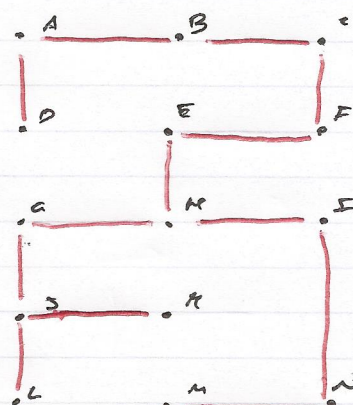 A B C
D E F
G H I
J K
L M N